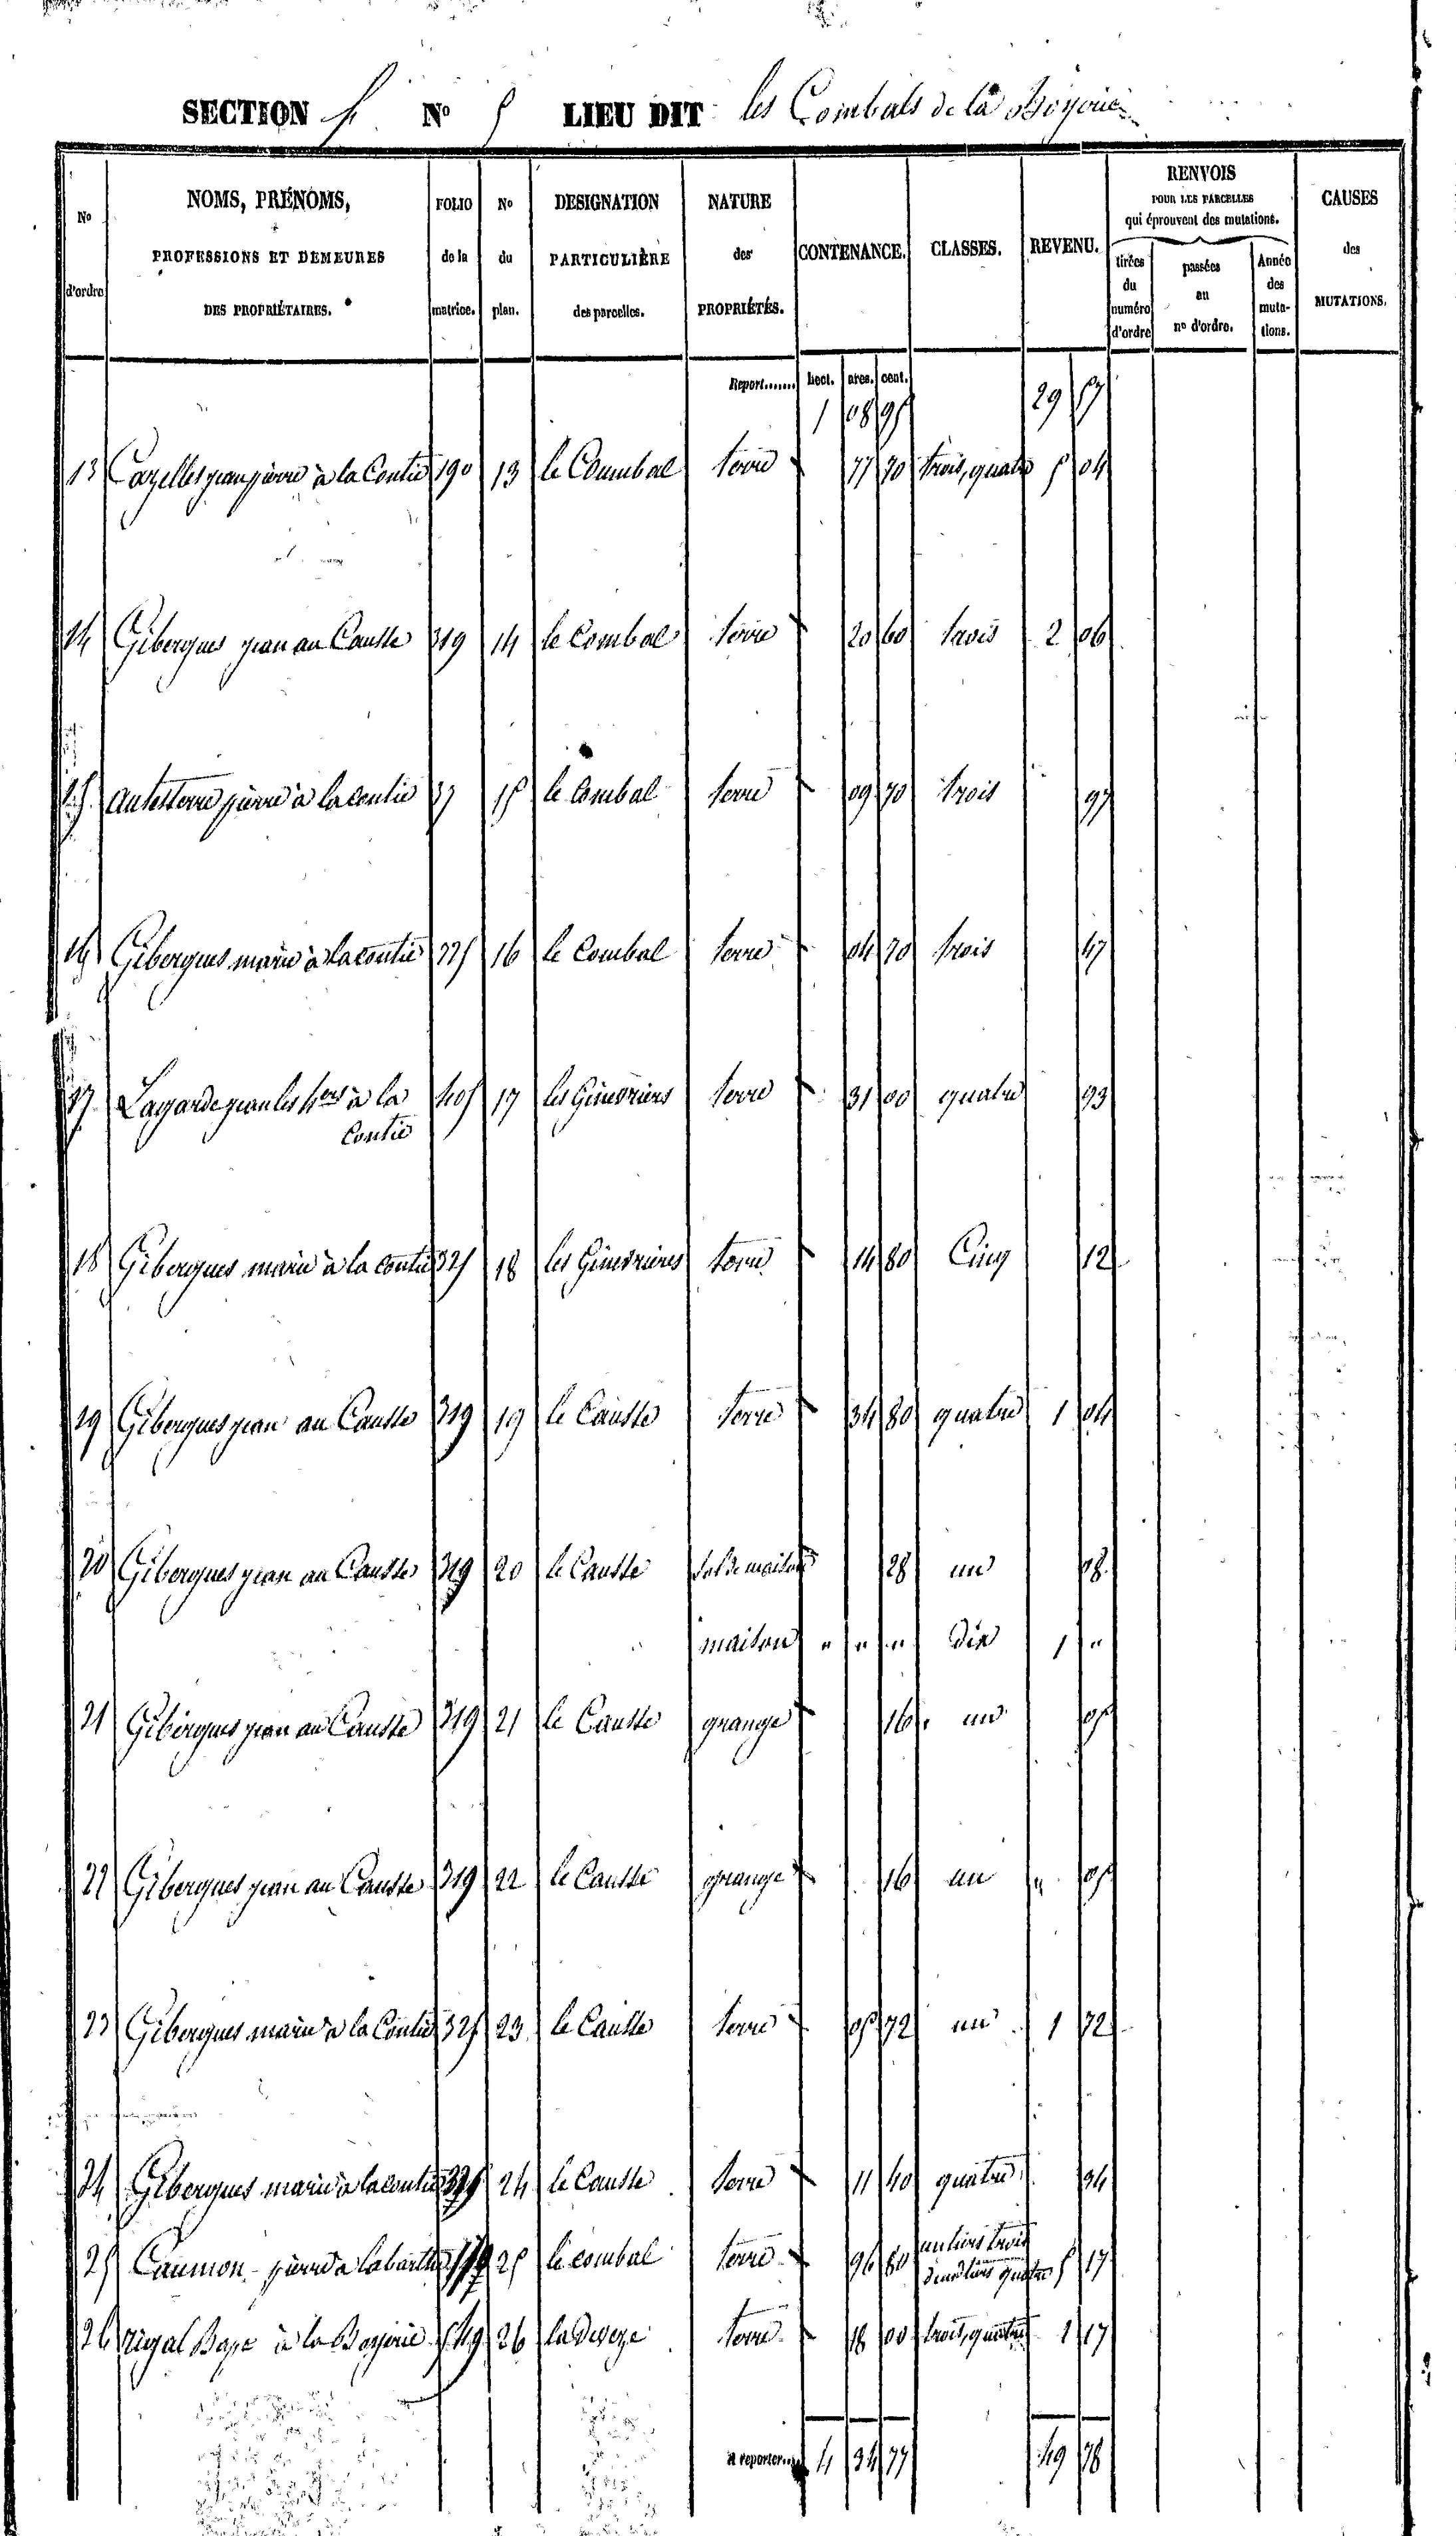 SECTION f. N° 5 LIEU DIT les Combals de la Boyerie
N° d'ordre
NOMS, PRÉNOMS, PROFESSIONS ET DEMEURES DES PROPRIÉTAIRES.
FOLIO de la matrice.
N° du plan.
DESIGNATION PARTICULIÈRE des parcelles.
NATURE des PROPRIÉTÉS.
CONTENANCE.
CLASSES.
REVENU.
RENVOIS POUR LES PARCELLES qui éprouvent des mutations.
tirées du numéro d'ordre
passées au n° d'ordre.
Année des muta-tions.
CAUSES des MUTATIONS.
Report....... hect. ares. cent.
1 08 95 29 57
13 Cazelles jean pierre à la Contie 190 13 le Coumbal terre 77 70 trois, quatre 5 04
14 Gibergues jean au Causse 319 14 le Combal terre 20 60 trois 2 06
15 antesterre pierre à la contie 37 15 le Combal terre 09 70 trois 97
16 Gibergues marie à la contie 325 16 le Combal terre 04 70 trois 47
17 Lagarde jean les hers à la 405 17 les Ginevriers terre 31 00 quatre 93
Contie
18 Gibergues marie à la contie 325 18 les Ginevrieres terre 14 80 Cinq 12
19 Gibergues jean au Causse 319 19 le Causse terre 34 80 quatre 1 04
20 Gibergues jean au Causse 319 20 le Causse sol de maison 28 un 08
maison " " " dix 1 "
21 Gibergues jean au Causse 319 21 le Causse grange 16 un 05
22 Gibergues jean au Causse 319 22 le Causse grange 16 un " 05
23 Gibergues marie à la Contie 325 23 le Causse terre 05 72 un 1 72
24 Gibergues marie à la contie 325 24 le Causse terre 11 40 quatre 34
25 Caumon pierre à labarthe 25 le combal terre 96 80 un tiers trois deux tiers quatre 5 17
26 rigal Baze à la Boyerie 549 26 la Deveze terre 18 00 trois, quatre 1 17
A reporter.... 4 34 77 49 78